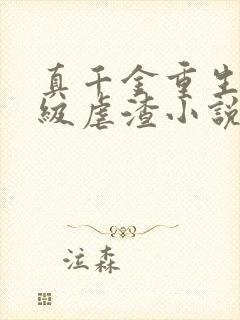 真千金重生
级虐渣小说
泣森